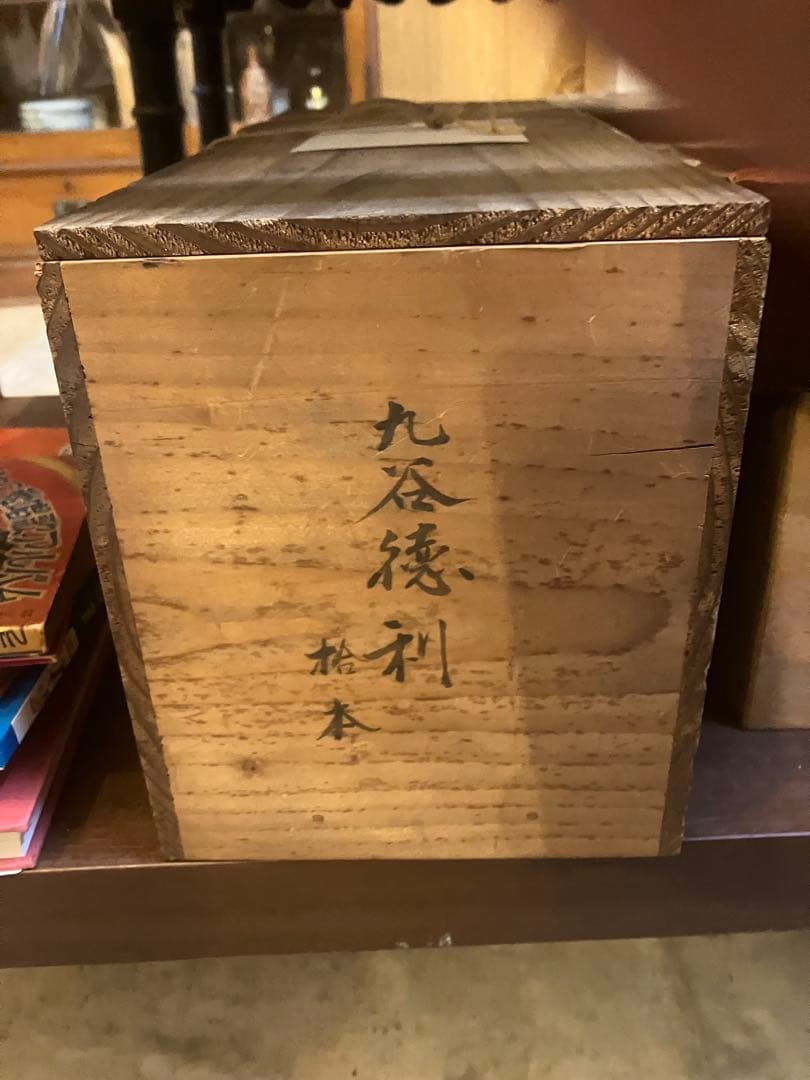 九谷徳利
拾本